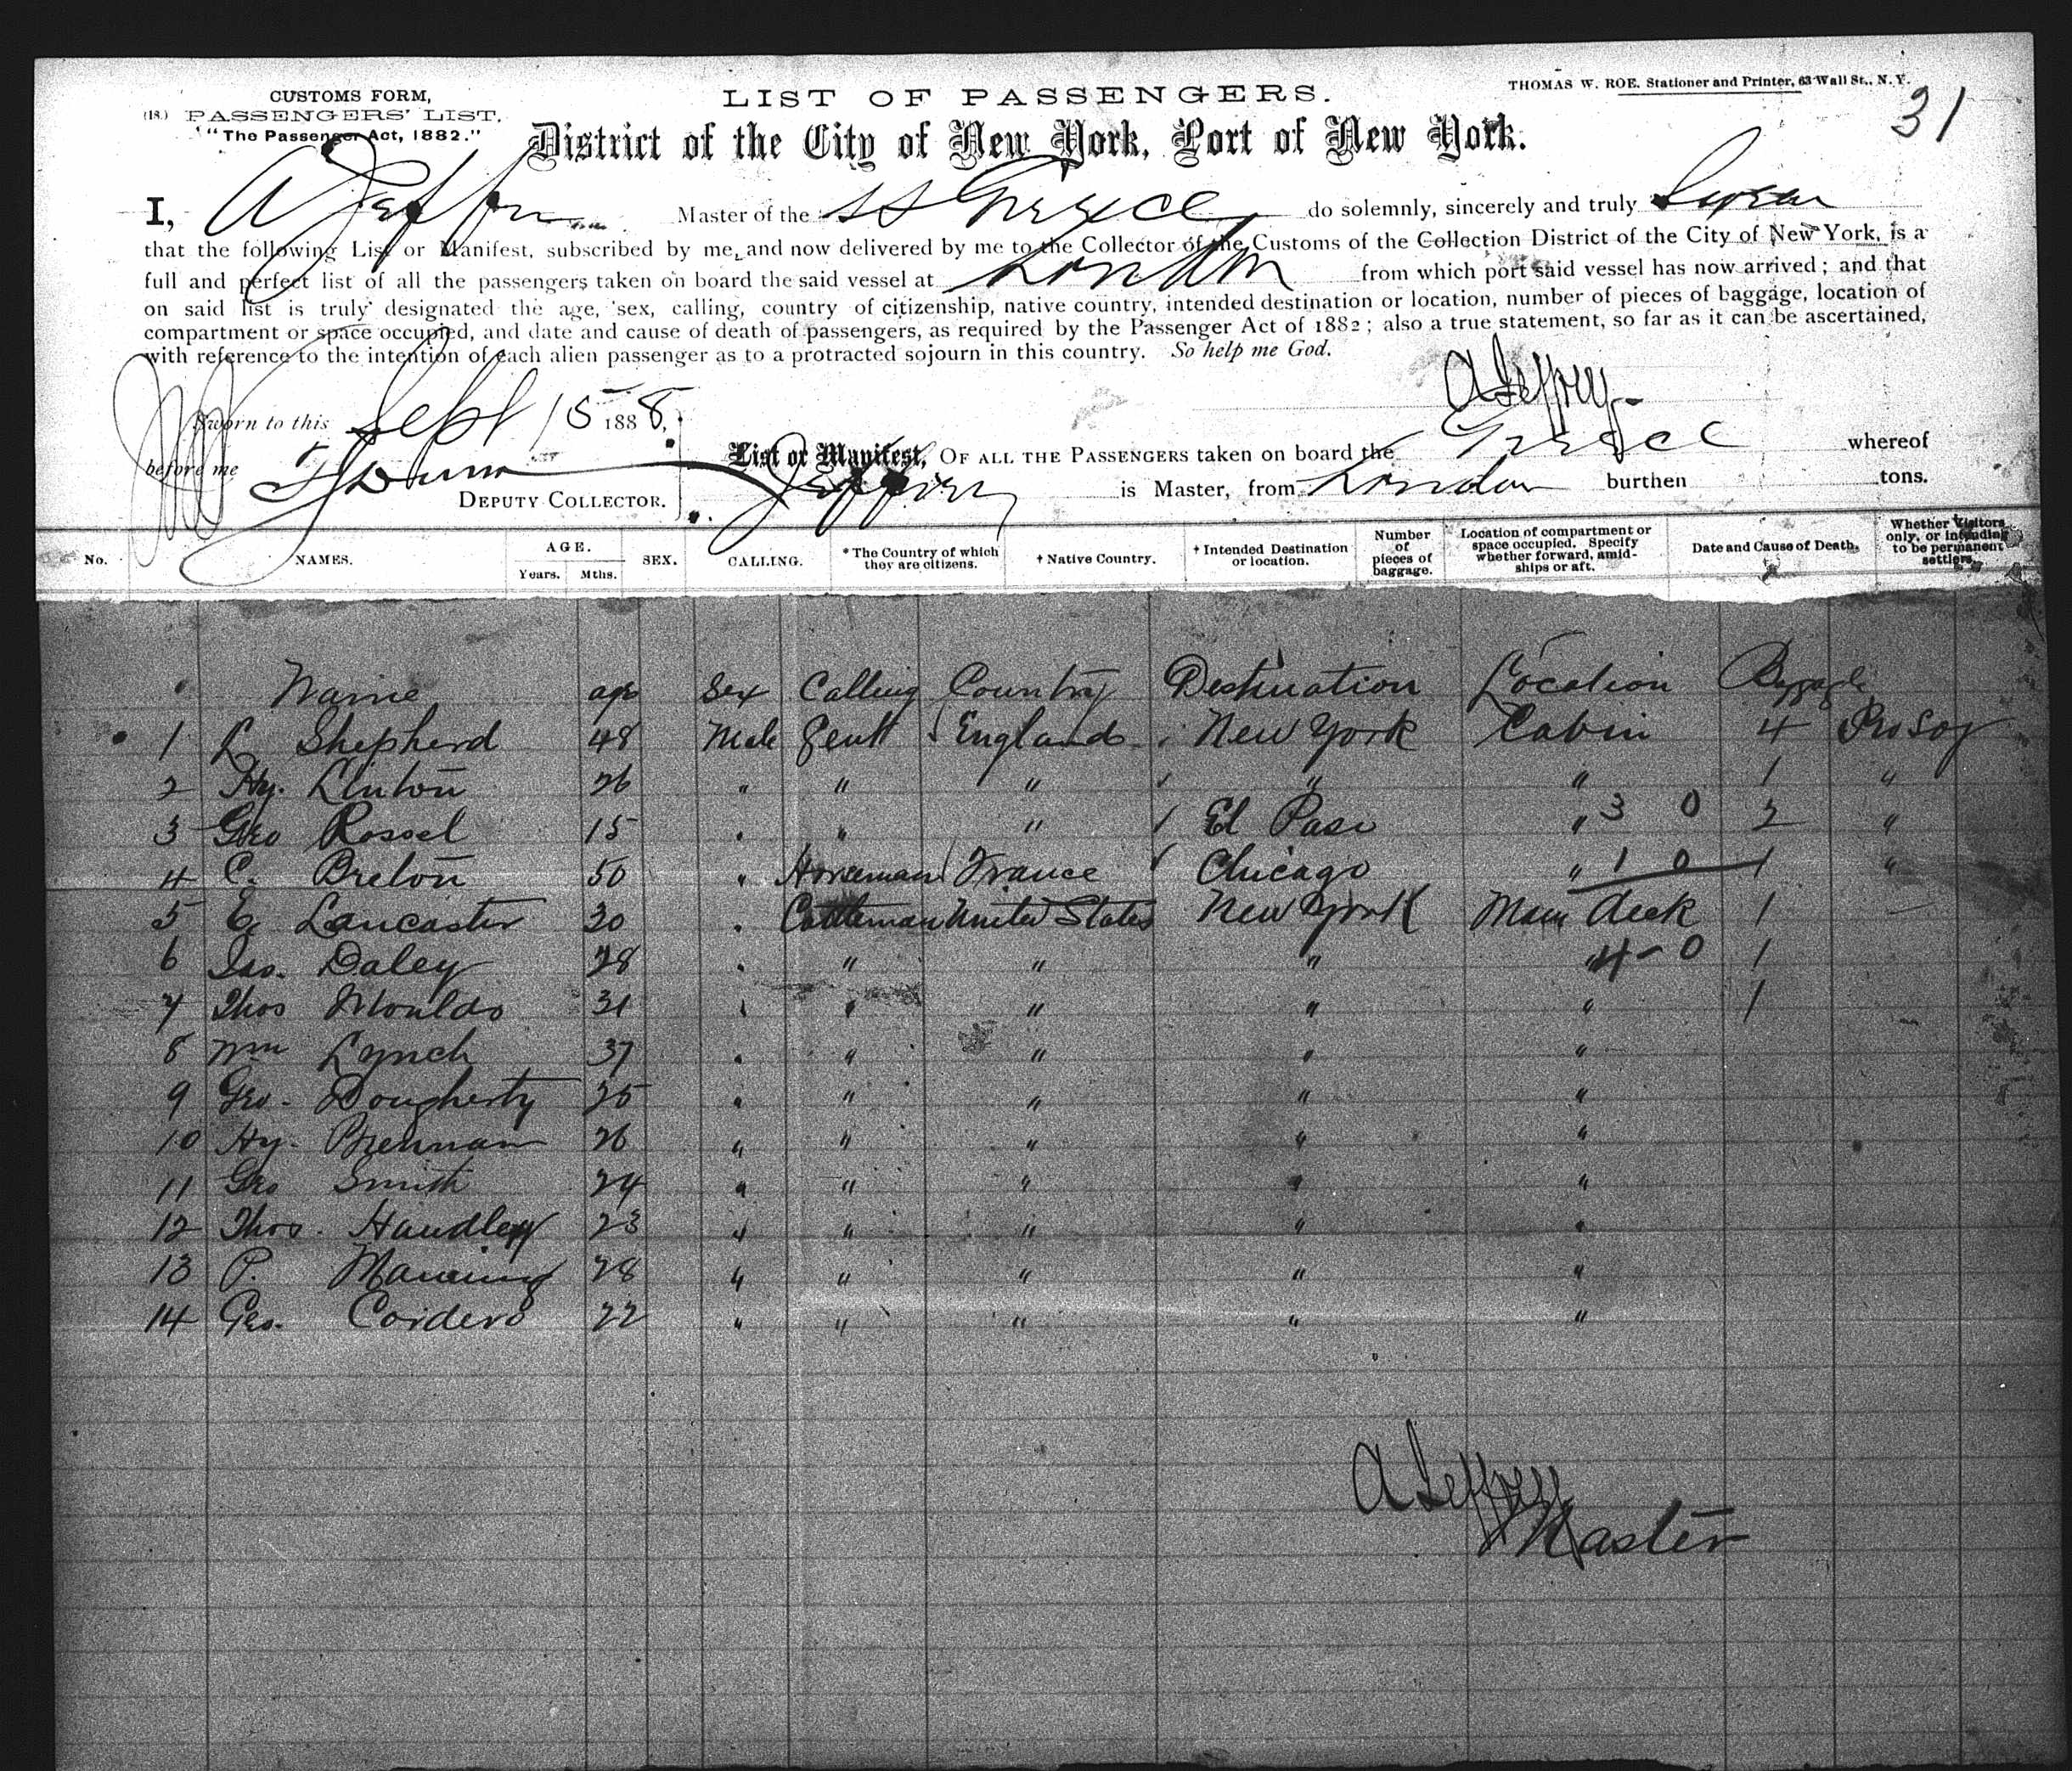 CUSTOMS FORM,
(18.) PASSENGERS' LIST,
"The Passenger Act, 1882."
LIST OF PASSENGERS.
THOMAS W. ROE. Stationer and Printer, 63 Wall St., N. Y.
31
District of the City of New York, Port of New York.
I, A Jeffrey Master of the SS Greece do solemnly, sincerely and truly Swear
that the following List or Manifest, subscribed by me, and now delivered by me to the Collector of the Customs of the Collection District of the City of New York, is a
full and perfect list of all the passengers taken on board the said vessel at London from which port said vessel has now arrived; and that
on said list is truly designated the age, sex, calling, country of citizenship, native country, intended destination or location, number of pieces of baggage, location of
compartment or space occupied, and date and cause of death of passengers, as required by the Passenger Act of 1882; also a true statement, so far as it can be ascertained,
with reference to the intention of each alien passenger as to a protracted sojourn in this country. So help me God.
A Jeffrey
Sworn to this Sept 15 1888,
before me
DEPUTY COLLECTOR.
List or Manifest, OF ALL THE PASSENGERS taken on board the Greece whereof
Jeffrey is Master, from London burthen tons.
No. NAMES. AGE. Years. Mths. SEX. CALLING. * The Country of which they are citizens. † Native Country. † Intended Destination or location. Number of pieces of baggage. Location of compartment or space occupied. Specify whether forward, amidships or aft. Date and Cause of Death. Whether Visitors only, or intending to be permanent settlers.
Name age Sex Calling Country Destination Location Baggage
1 L Shepherd 48 Male Gentt England New York Cabin 4 Pro Soj
2 Hy. Linton 26 " " " " " 1 "
3 Geo Rossel 15 " " " El Paso " 3 0 2 "
4 C. Breton 50 " Horseman France Chicago " 1 0 1 "
5 E. Lancaster 30 " Cattleman United States New York Main deck 1
6 Jas. Daley 28 " " " " " 4-0 1
7 Thos Moulds 31 " " " " " 1
8 Wm Lynch 37 " " " " "
9 Geo. Dougherty 25 " " " " "
10 Hy. Brennan 26 " " " " "
11 Geo Smith 24 " " " " "
12 Thos. Handley 23 " " " " "
13 P. Manning 28 " " " " "
14 Geo. Cordero 22 " " " " "
A Jeffrey
Master